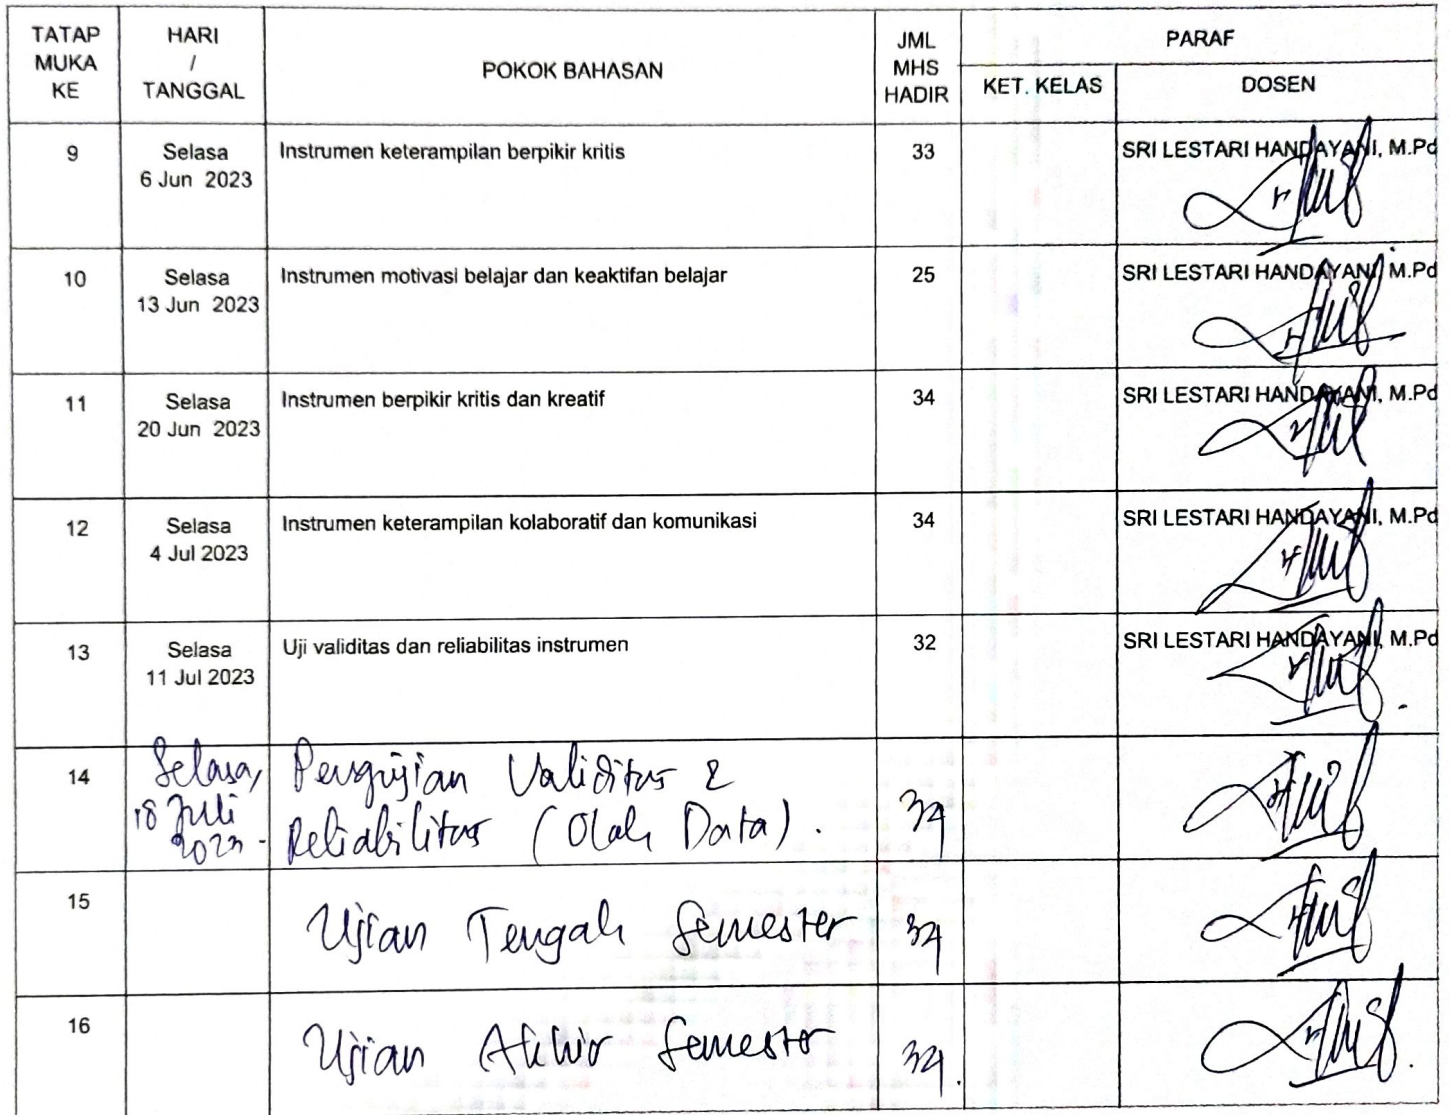 TATAP
MUKA
KE
HARI
/
TANGGAL
POKOK BAHASAN
JML
MHS
HADIR
PARAF
KET. KELAS
DOSEN
9
Selasa
6 Jun 2023
Instrumen keterampilan berpikir kritis
33
SRI LESTARI HANDAYANI, M.Pd
10
Selasa
13 Jun 2023
Instrumen motivasi belajar dan keaktifan belajar
25
SRI LESTARI HANDAYANI, M.Pd
11
Selasa
20 Jun 2023
Instrumen berpikir kritis dan kreatif
34
SRI LESTARI HANDAYANI, M.Pd
12
Selasa
4 Jul 2023
Instrumen keterampilan kolaboratif dan komunikasi
34
SRI LESTARI HANDAYANI, M.Pd
13
Selasa
11 Jul 2023
Uji validitas dan reliabilitas instrumen
32
SRI LESTARI HANDAYANI, M.Pd
14
Selasa,
18 Juli
2023-
Pengujian Validitas &
Reliabilitas (Olah Data).
34
15
Ujian Tengah Semester
34
16
Ujian Akhir Semester
34.